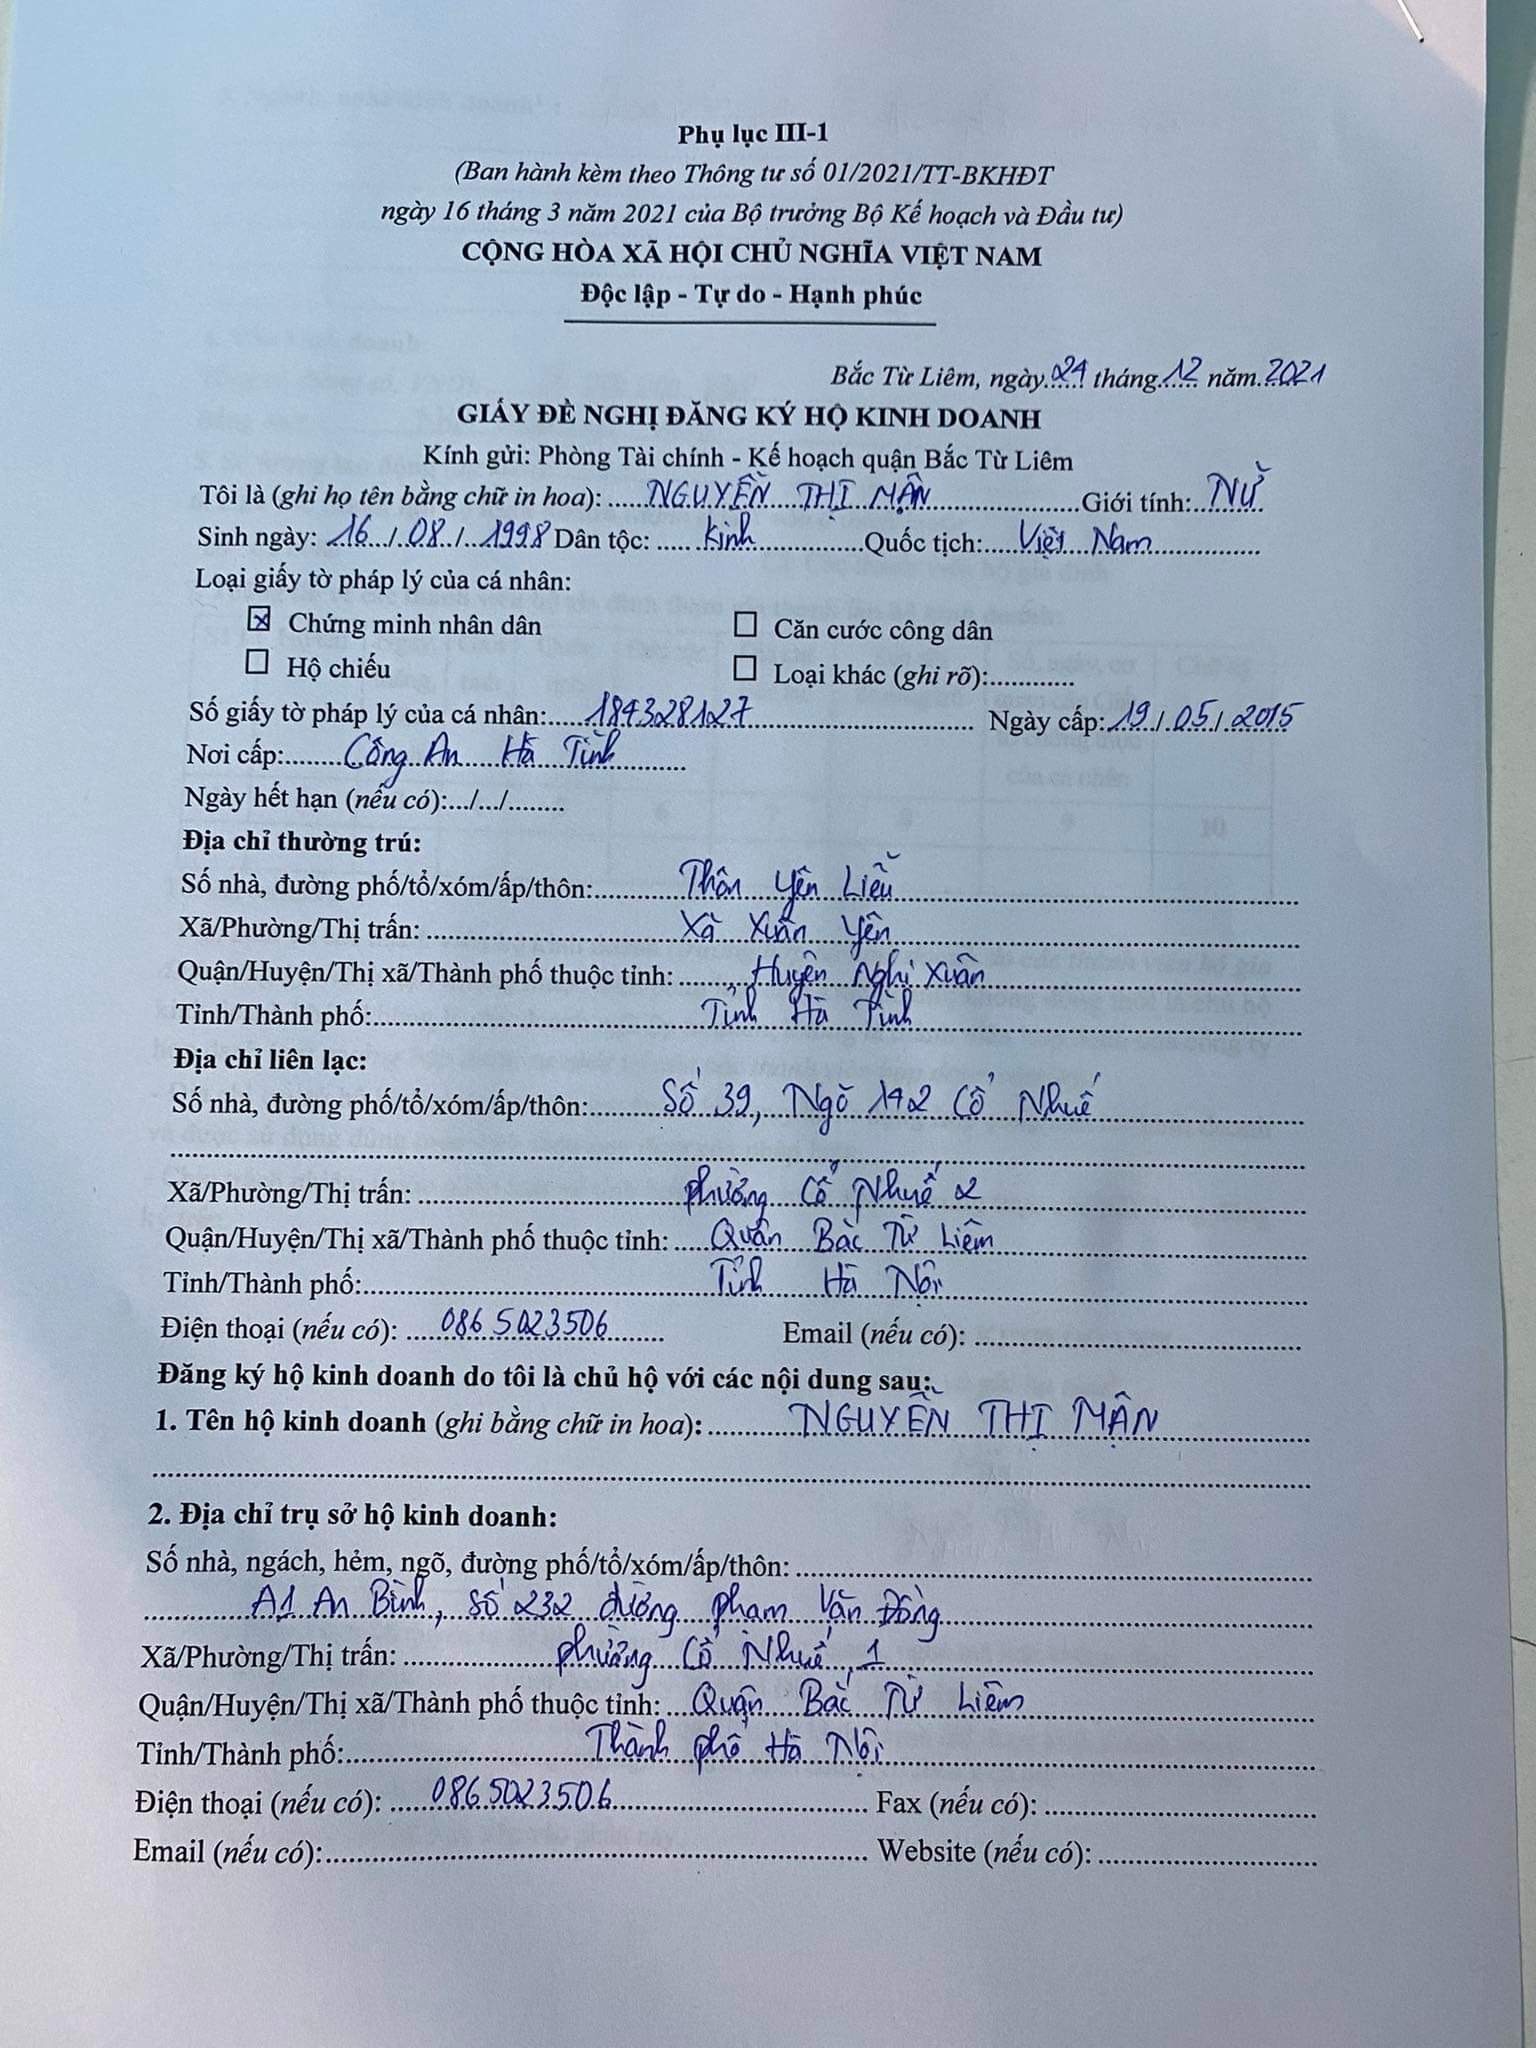 Phụ lục III-1
(Ban hành kèm theo Thông tư số 01/2021/TT-BKHĐT
ngày 16 tháng 3 năm 2021 của Bộ trưởng Bộ Kế hoạch và Đầu tư)
CỘNG HÒA XÃ HỘI CHỦ NGHĨA VIỆT NAM
Độc lập - Tự do - Hạnh phúc
Bắc Từ Liêm, ngày 24 tháng 12 năm 2021
GIẤY ĐỀ NGHỊ ĐĂNG KÝ HỘ KINH DOANH
Kính gửi: Phòng Tài chính - Kế hoạch quận Bắc Từ Liêm
Tôi là (ghi họ tên bằng chữ in hoa): NGUYỄN THỊ MẬN Giới tính: NỮ
Sinh ngày: 16 / 08 / 1998 Dân tộc: Kinh Quốc tịch: Việt Nam
Loại giấy tờ pháp lý của cá nhân:
☒ Chứng minh nhân dân ☐ Căn cước công dân
☐ Hộ chiếu ☐ Loại khác (ghi rõ):............
Số giấy tờ pháp lý của cá nhân: 184328127 Ngày cấp: 19 / 05 / 2015
Nơi cấp: Công An Hà Tĩnh
Ngày hết hạn (nếu có):.../.../........
Địa chỉ thường trú:
Số nhà, đường phố/tổ/xóm/ấp/thôn: Thôn Yên Liễu
Xã/Phường/Thị trấn: Xã Xuân Yên
Quận/Huyện/Thị xã/Thành phố thuộc tỉnh: Huyện Nghi Xuân
Tỉnh/Thành phố: Tỉnh Hà Tĩnh
Địa chỉ liên lạc:
Số nhà, đường phố/tổ/xóm/ấp/thôn: Số 39, Ngõ 142 Cổ Nhuế
Xã/Phường/Thị trấn: phường Cổ Nhuế 2
Quận/Huyện/Thị xã/Thành phố thuộc tỉnh: Quận Bắc Từ Liêm
Tỉnh/Thành phố: Tỉnh Hà Nội
Điện thoại (nếu có): 0865023506 Email (nếu có):
Đăng ký hộ kinh doanh do tôi là chủ hộ với các nội dung sau:
1. Tên hộ kinh doanh (ghi bằng chữ in hoa): NGUYỄN THỊ MẬN
2. Địa chỉ trụ sở hộ kinh doanh:
Số nhà, ngách, hẻm, ngõ, đường phố/tổ/xóm/ấp/thôn:
A1 An Bình, số 232 đường phạm Văn Đồng
Xã/Phường/Thị trấn: phường Cổ Nhuế 1
Quận/Huyện/Thị xã/Thành phố thuộc tỉnh: Quận Bắc Từ Liêm
Tỉnh/Thành phố: Thành phố Hà Nội
Điện thoại (nếu có): 0865023506 Fax (nếu có):
Email (nếu có): Website (nếu có):